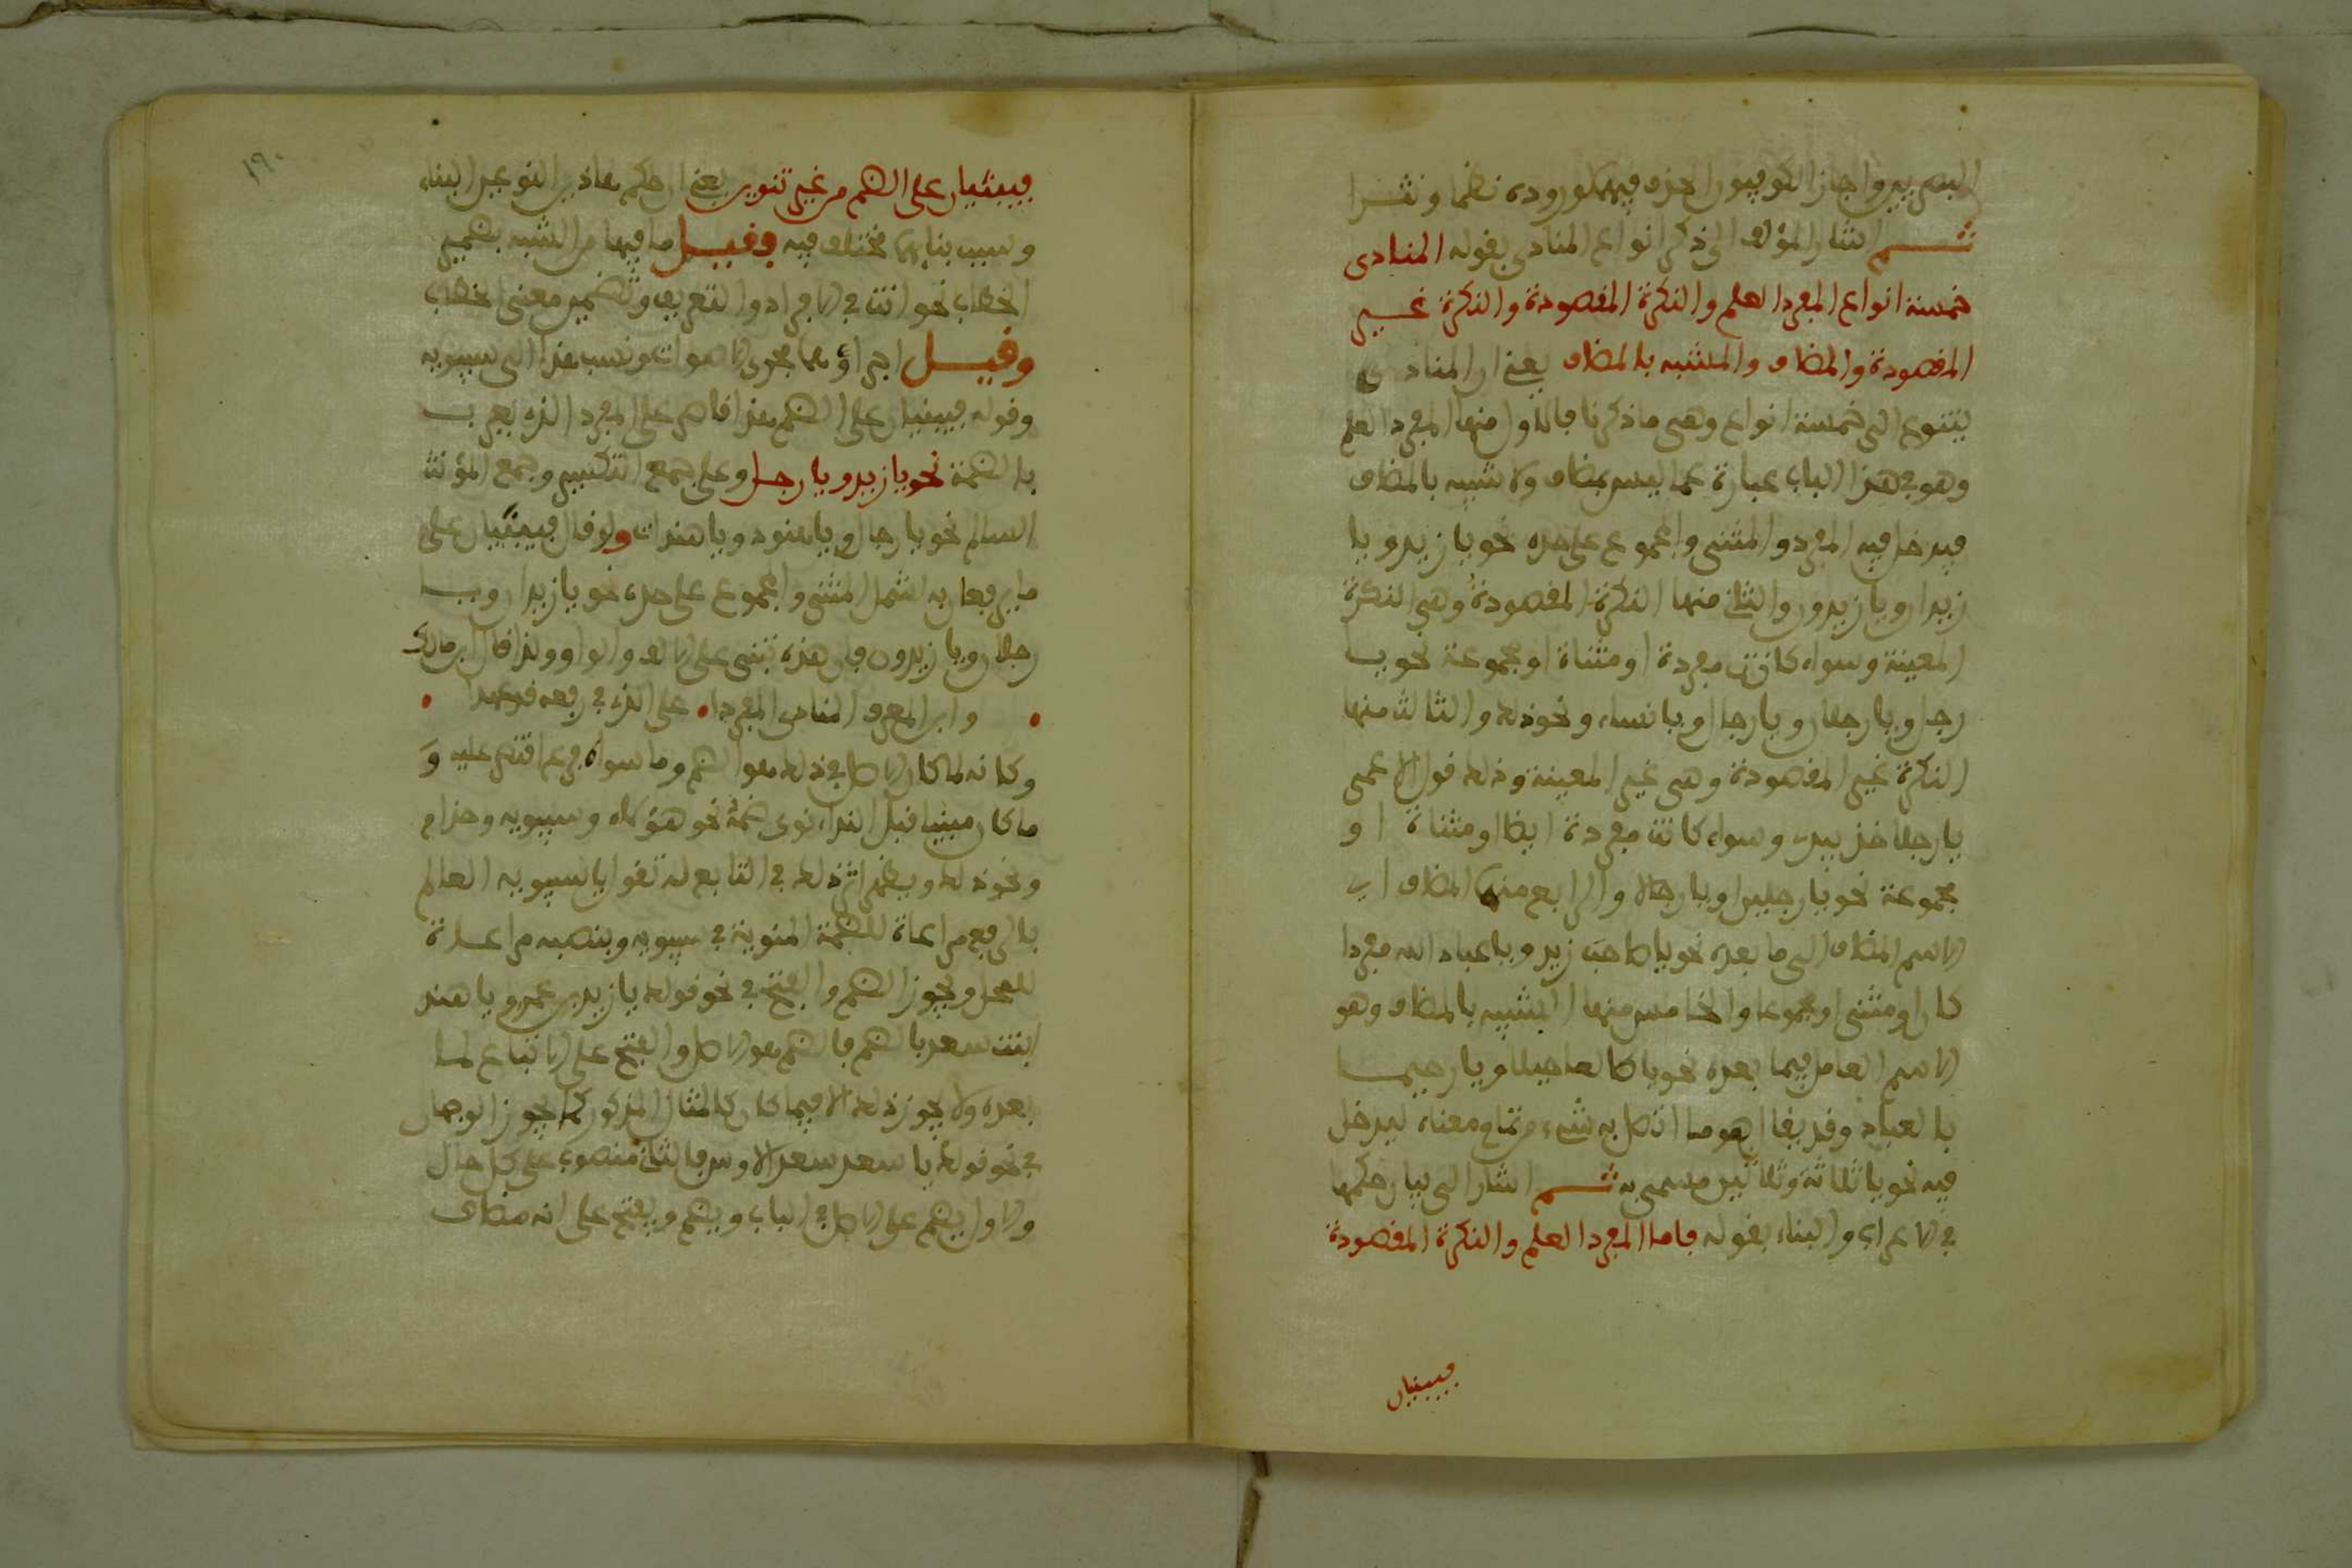 البصريين واجاز الكوفيون الحذف فيهما لوروده نظما ونثرا
ثم اشار المؤلف الى ذكر انواع المنادى بقوله المنادى
خمسة انواع المفرد العلم والنكرة المقصودة والنكرة غير
المقصودة والمضاف والمشبه بالمضاف يعني ان المنادى
يتنوع الى خمسة انواع وهى ما ذكرنا فالاول منها المفرد العلم
وهو في هذا الباب عبارة عما ليس بمضاف ولا شبيه بالمضاف
فيدخل فيه المفرد والمثنى والمجموع على حده نحو يا زيد ويا
زيدان ويا زيدون والثاني منها النكرة المقصودة وهي النكرة
المعينة وسواء كانت مفردة او مثناة او مجموعة نحو يا
رجل ويا رجلان ويا رجال ويا نساء ونحو ذلك والثالث منها
النكرة غير المقصودة وهى غير المعينة وذلك قول الاعمى
يا رجلا خذ بيدي وسواء كانت مفردة ايضا او مثناة او
مجموعة نحو يا رجلين او يا رجالا والرابع منها المضاف اي
الاسم المضاف الى ما بعده نحو يا صاحب زيد ويا عباد الله مفردا
كان او مثنى او مجموعا والخامس منها المشبه بالمضاف وهو
الاسم العامل فيما بعده نحو يا طالعا جبلا ويا رحيما
بالعباد وقد يقال هو ما اتصل به شيء من تمام معناه ليدخل
فيه نحو يا ثلاثة وثلاثين مسمى به ثم اشار الى بيان حكمها
في الاعراب والبناء بقوله فاما المفرد العلم والنكرة المقصودة
فيبنيان
١٩٠
فيبنيان على الضم من غير تنوين يعني ان حكم هاذين النوعين البناء
وسبب بنايهما مختلف فيه فقيل ما فيها من الشبه بضمير
الخطاب نحو انت في الافراد والتعريف وتضمين معنى الخطاب
وقيل اجراؤهما مجرى الاصوات ونسب هذا الى سيبويه
وقوله فيبنيان على الضم هذا قاصر على المفرد الذي يعرب
بالضمة نحو يا زيد ويا رجل وعلى جمع التكسير وجمع المؤنث
السالم نحو يا رجال ويا هنود ويا هندات ولو قال فيبنيان على
ما يرفعان به لشمل المثنى والمجموع على حده نحو يا زيدان ويا
رجلان ويا زيدون فان هذه تبنى على الالف والواو ولذا قال ابن مالك
وابن المعرف المنادى المفردا • على الذي في رفعه قد عهدا
وكانه لما كان الاصل في ذلك هو الضم وما سواه فرع اقتصر عليه و
ما كان مبنيا قبل النداء نوى ضمه نحو هؤلاء وسيبويه وحذام
ونحو ذلك ويظهر اثر ذلك في التابع له تقول يا سيبويه العالم
بالرفع مراعاة للضمة المنوية في سيبويه وبنصبه مراعاة
للمحل ويجوز الضم والفتح في نحو قولك يا زيد بن عمرو يا هند
ابنت سعد بالضم فالضم هو الاصل والفتح على الاتباع لما
بعده ولا يجوز ذلك الا فيما كان كالمثال المذكور كما يجوز الوجهان
في نحو قولك يا سعد سعد الاوس فالثاني منصوب على كل حال
والاول يضم على الاصل في الباب ويضم ويفتح على انه مضاف